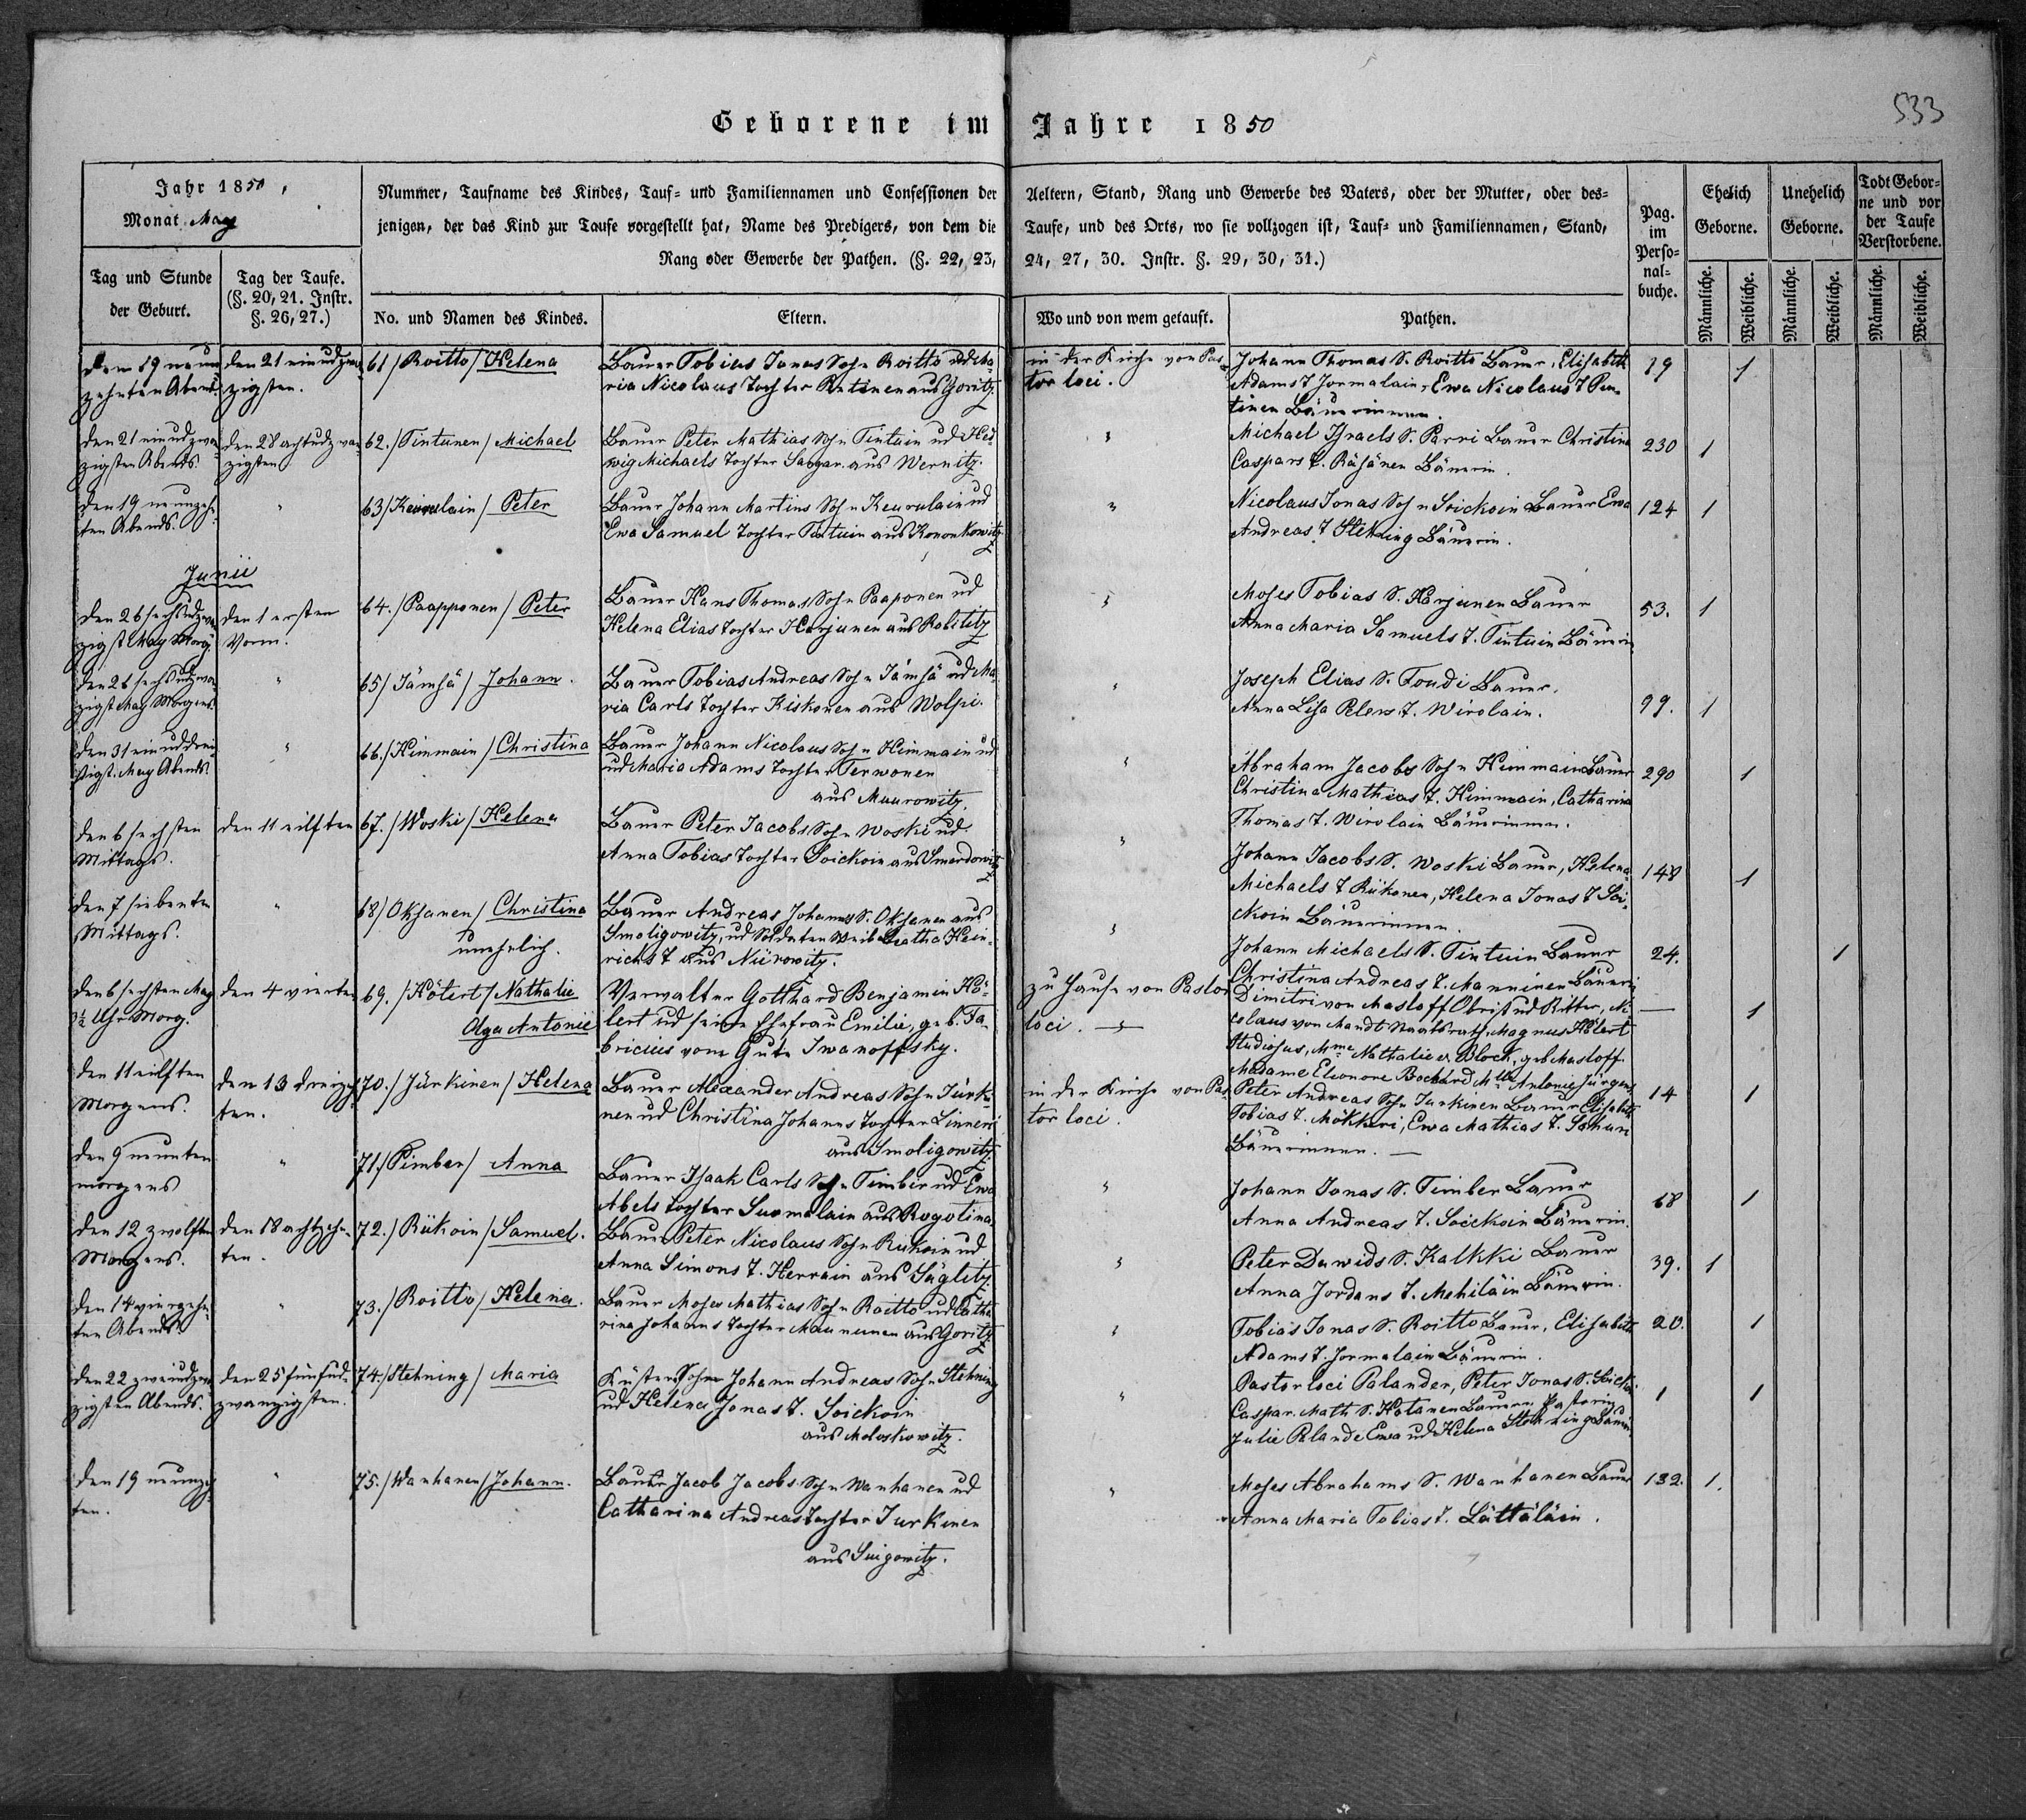 533
Geborene im Jahre 1850
Jahr 1850,
Monat May
Nummer, Taufname des Kindes, Tauf- und Familiennamen und Confessionen der Aeltern, Stand, Rang und Gewerbe des Vaters, oder der Mutter, oder des-
jenigen, der das Kind zur Taufe vorgestellt hat, Name des Predigers, von dem die Taufe, und des Orts, wo sie vollzogen ist, Tauf- und Familiennamen, Stand,
Rang oder Gewerbe der Pathen. (§. 22, 23, 24, 27, 30. Instr. §. 29, 30, 31.)
Pag.
im
Perso-
nal-
buche.
Ehelich
Geborne.
Unehelich
Geborne.
Todt Gebor-
ne und vor
der Taufe
Verstorbene.
Tag und Stunde
der Geburt.
Tag der Taufe.
(§. 20, 21. Instr.
§. 26, 27.)
No. und Namen des Kindes.
Eltern.
Wo und von wem getauft.
Pathen.
Männliche.
Weibliche.
Männliche.
Weibliche.
Männliche.
Weibliche.
Den 19 neun
zehnten Abend.
den 21 ein ud zwan
zigsten.
61/ Roitto/ Helena
Bauer Tobias Jonas Sohn Roitto ud Ma-
ria Nicolaus Tochter Pentinen aus Goritz.
in der Kirche von Pas-
tor loci.
Johann Thomas S. Roitto Bauer, Elisabeth
Adams T. Jormalain, Ewa Nicolaus T. Pen-
tinen Bäuerinnen.
19
1
den 21 ein ud zwan
zigsten Abends.
den 28 acht ud zwan
zigsten
62./ Tintunen/ Michael
Bauer Peter Mathias Sohn Tintuin ud Hed-
wig Michaels Tochter aus Wernitz.
"
Michael Israels S. Parri Bauer Christina
Caspars T. Räsänen Bäuerin.
230
1
den 19 neunzehn
ten Abends.
"
63/ Keurulain/ Peter
Bauer Johann Martins Sohn Keurulain ud
Ewa Samuel Tochter Tintuin aus Kononkowitz
"
Nicolaus Jonas Sohn Soickoin Bauer Ewa
Andreas T. Stehning Bäuerin.
124
1
Junii
den 26 sechs ud zwan
zigst May Morg.
den 1 ersten
Vorm.
64./ Paapponen/ Peter
Bauer Hans Thomas Sohn Paaponen ud
Helena Elias Tochter Harjunen aus Robilitz
"
Moses Tobias S. Harjunen Bauer
Anna Maria Samuels T. Tintuin Bäuerin
53.
1
den 26 sechs ud zwan
zigst May Morgens.
"
65/ Jämsä/ Johann.
Bauer Tobias Andreas Sohn Jämsä ud Ma-
ria Carls Tochter Kiskonen aus Wolpi.
"
Joseph Elias S. Toudi Bauer.
Anna Lisa Peters T. Wirolain.
99.
1
den 31 ein ud drei
ßigst. May Abends.
"
66./ Himmain/ Christina
Bauer Johann Nicolaus Sohn Himmain ud
ud Maria Adams Tochter Terwonen
aus Maurowitz.
"
Abraham Jacobs Sohn Himmain Bauer
Christina Mathias T. Himmain, Catharina
Thomas T. Wirolain Bäuerinnen.
290
1
den 6 sechsten
Mittags.
den 11 eilften
67./ Woski/ Helena
Bauer Peter Jacobs Sohn Woski ud
Anna Tobias Tochter Soickoin aus Smerdowitz
"
Johann Jacobs S. Woski Bauer, Helena
Michaels T. Rükonen, Helena Jonas T. Soi-
ckoin Bäuerinnen.
148
1
den 7 siebenten
Mittags.
"
68/ Oksanen/ Christina
unehelich.
Bauer Andreas Johanns S. Oksanen aus
Smoligowitz, ud Soldaten Weib Hein-
richs T. aus Niirowitz.
"
Johann Michaels S. Tintuin Bauer
Christina Andreas T. Manninen Bäuerin
24.
1
den 6 sechsten May
Uhr Morg.
den 4 vierten
69. / Hölert/ Nathalie
Olga Antonie
Verwalter Gotthard Benjamin Hö-
lert ud seine Ehefrau Emilie, geb. Fa-
bricius vom Gute Iwanoffsky.
zu Hause von Pastor
loci.
Dimitri von Masloff Obrist ud Ritter, Ni-
colaus von Mandt Magnus Hölert
Studiosus, Mme Nathalie v. Block, geb. Masloff.
Madame Eleonore Bochard Mlle Antonie Jürgens
—
1
den 11 eilften
Morgens.
den 13 dreizehn
ten.
70./ Jürkinen/ Helena
Bauer Alexander Andreas Sohn Jürki-
nen ud Christina Johanns Tochter Linneri
aus Smoligowitz.
in der Kirche von Pas-
tor loci.
Peter Andreas Sohn Jurkinen Bauer Elisabeth
Tobias T. Mökkeri, Ewa Mathias T.
Bäuerinnen. —
14
1
den 9 neunten
morgens
"
71./ Timber/ Anna
Bauer Isaak Carls Sohn Timber ud Ewa
Abels Tochter Suomalain aus Rogolina
"
Johann Jonas S. Timber Bauer
Anna Andreas T. Soickoin Bäuerin.
68
1
den 12 zwölften
Morgens.
den 18 achtzehn-
ten.
72./ Rükoin/ Samuel.
Bauer Peter Nicolaus Sohn Rükoin ud
Anna Simons T. Herrain aus Säglitz.
"
Peter Davids S. Kalkki Bauer
Anna Jordans T. Mehiläin Bäuerin.
39.
1
den 14 vierzehn
ten Abends.
"
73./ Roitto/ Helena.
Bauer Moses Mathias Sohn Roitto ud Catha-
rina Johanns Tochter Maununen aus Goritz
"
Tobias Jonas S. Roitto Bauer, Elisabeth
Adams T. Jormalain Bäuerin.
20.
1
den 22 zwei ud zwan
zigsten Abends.
den 25 fünf ud-
zwanzigsten.
74./ Stehning/ Maria
Küsters Sohn Johann Andreas Sohn Stehning
ud Helena Jonas T. Soickoin
aus Moloskowitz.
"
Pastor loci Palander, Peter Jonas S. Soickoi
Caspar Math. S. Hötanen Bauern, Pastorin
Julie Palander Ewa ud Helena Stehning Bäuerin
1
1
den 19 neunzehn
ten.
"
75./ Wanhanen/ Johann.
Bauer Jacob Jacobs Sohn Wanhanen ud
Catharina Andreas Tochter Jurkinen
aus Suigowitz.
"
Moses Abrahams S. Wanhanen Bauer
Anna Maria Tobias T. Lättäläin.
132.
1.